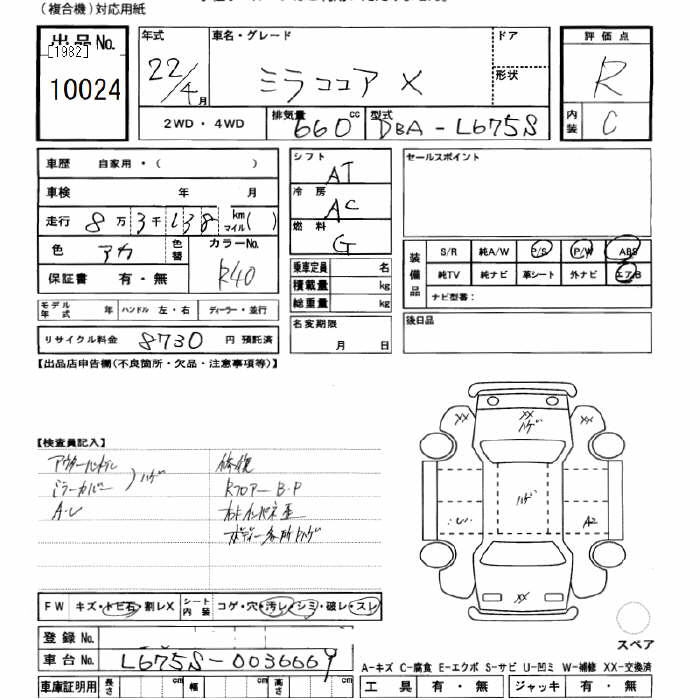 (複合機)対応用紙
出品No.
[1982]
10024
年式
22/4月
車名・グレード
ミラココア X
ドア
形状
評価点
R
内装
C
2WD・4WD
排気量 660 cc
型式 DBA-L675S
車歴 自家用・( )
車検 年 月
走行 8万3千138 km マイル( )
色 アカ
色替
カラーNo.
R40
保証書 有・無
モデル年式 年 ハンドル 左・右 ディーラー・並行
リサイクル料金 8730 円 預託済
シフト
AT
冷房
AC
燃料
G
乗車定員 名
積載量 kg
総重量 kg
名変期限
月 日
セールスポイント
装備品
S/R 純A/W P/S P/W ABS
純TV 純ナビ 革シート 外ナビ エアB
ナビ型番:
後日品
【出品店申告欄(不良箇所・欠品・注意事項等)】
【検査員記入】
アウターハンドル
ミラーカバー
ハゲ
A・U
修復
RフロアーB・P
ボディー各所ハゲ
XX
XX
XX
ハゲ
ハゲ
A2
XX
FW キズ・トビ石・割レX
シート内装 コゲ・穴・汚レ・シミ・破レ・スレ
スペア
登録No.
車台No. L675S-0036669
A-キズ C-腐食 E-エクボ S-サビ U-凹ミ W-補修 XX-交換済
車庫証明用 長さ cm 幅 cm 高さ cm
工具 有・無 ジャッキ 有・無